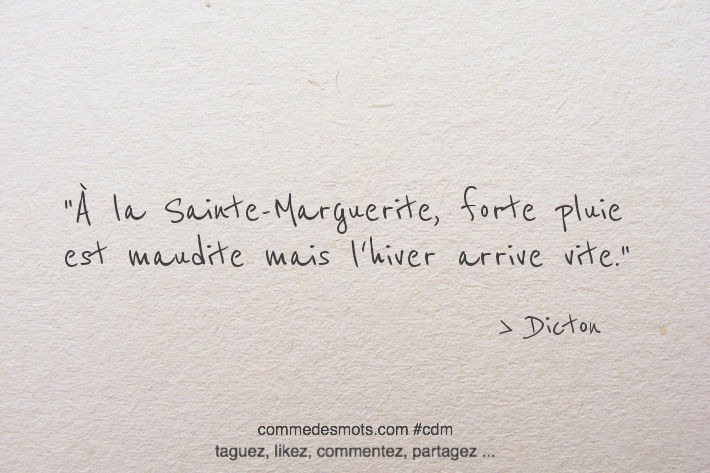 "À la Sainte-Marguerite, forte pluie
est maudite mais l'hiver arrive vite."
> Dicton
commedesmots.com #cdm
taguez, likez, commentez, partagez ...